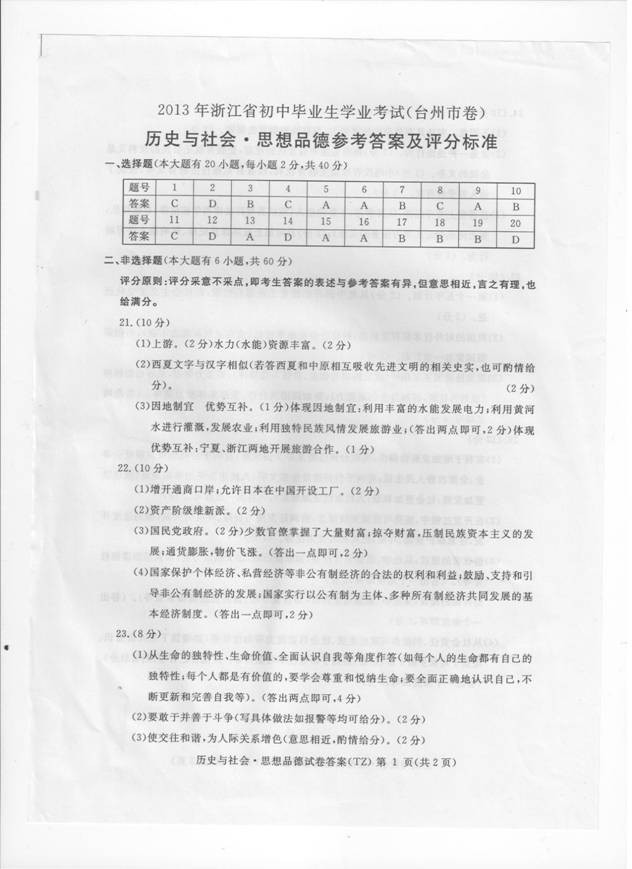 2013年浙江省初中毕业生学业考试(台州市卷)
历史与社会·思想品德参考答案及评分标准
一、选择题(本大题有20小题,每小题2分,共40分)
题号 1 2 3 4 5 6 7 8 9 10
答案 C D B C A A B C A B
题号 11 12 13 14 15 16 17 18 19 20
答案 C D A D A A B B B D
二、非选择题(本大题有6小题,共60分)
评分原则:评分采意不采点,即考生答案的表述与参考答案有异,但意思相近,言之有理,也
给满分。
21.(10分)
(1)上游。(2分)水力(水能)资源丰富。(2分)
(2)西夏文字与汉字相似(若答西夏和中原相互吸收先进文明的相关史实,也可酌情给
分)。 (2分)
(3)因地制宜 优势互补。(1分)体现因地制宜:利用丰富的水能发展电力;利用黄河
水进行灌溉,发展农业;利用独特民族风情发展旅游业;(答出两点即可,2分)体现
优势互补:宁夏、浙江两地开展旅游合作。(1分)
22.(10分)
(1)增开通商口岸;允许日本在中国开设工厂。(2分)
(2)资产阶级维新派。(2分)
(3)国民党政府。(2分)少数官僚掌握了大量财富;掠夺财富,压制民族资本主义的发
展;通货膨胀,物价飞涨。(答出一点即可,2分)
(4)国家保护个体经济、私营经济等非公有制经济的合法的权利和利益;鼓励、支持和引
导非公有制经济的发展;国家实行以公有制为主体、多种所有制经济共同发展的基
本经济制度。(答出一点即可,2分)
23.(8分)
(1)从生命的独特性、生命价值、全面认识自我等角度作答(如每个人的生命都有自己的
独特性;每个人都是有价值的,要学会尊重和悦纳生命;要全面正确地认识自己,不
断更新和完善自我等)。(答出两点即可,4分)
(2)要敢于并善于斗争(写具体做法如报警等均可给分)。(2分)
(3)使交往和谐,为人际关系增色(意思相近,酌情给分)。(2分)
历史与社会·思想品德试卷答案(TZ) 第 1 页(共2页)